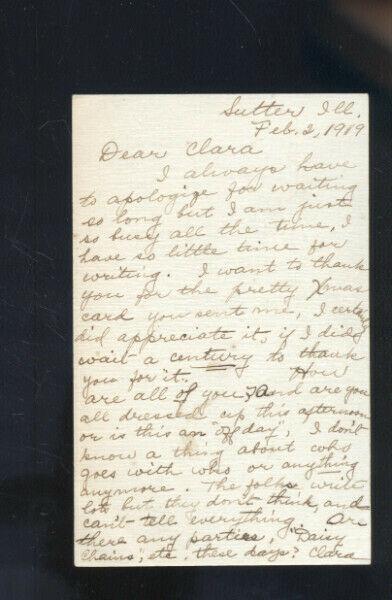 Sutter Ill.
Feb. 2, 1919
Dear Clara
I always have
to apologize for waiting
so long but I am just
so busy all the time, I
have so little time for
writing. I want to thank
you for the pretty Xmas
card you sent me, I certainly
did appreciate it, if I did
wait a century to thank
you for it. How
are all of you? And are you
all dressed up this afternoon
or is this an "off day", I don't
know a thing about who
goes with who or anything
anymore. The folks write
lots but they don't think, and
can't tell everything. Are
there any parties, "Daisy
Chains", etc. these days? Clara